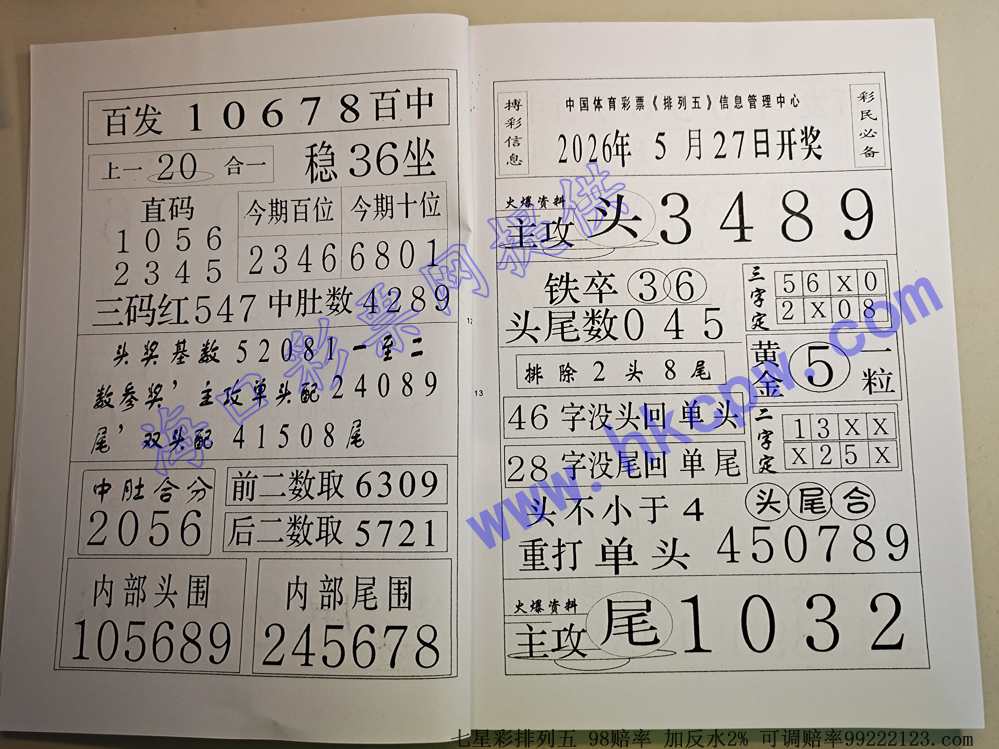 百发 10678 百中
上一 20 合一
稳 36 坐
直码
1056
2345
今期百位 今期十位
2346 6801
三码红 547 中肚数 4289
头奖基数 52081 一至二
数参奖，主攻单头配 24089
尾，双头配 41508 尾
中肚合分
2056
前二数取 6309
后二数取 5721
内部头围
105689
内部尾围
245678
12
13
搏彩信息
中国体育彩票《排列五》信息管理中心
2026年 5 月 27日开奖
彩民必备
火爆资料
主攻 头 3489
铁卒 36
头尾数 045
三字定
56X0
2X08
排除 2 头 8 尾
黄金 5 一粒
46 字没头回单头
28 字没尾回单尾
二字定
13XX
X25X
头不小于 4
头尾合
重打单头 450789
火爆资料
主攻 尾 1032
海口彩票网提供
www.hkcpw.com
七星彩排列五 98赔率 加反水2% 可调赔率99222123.com